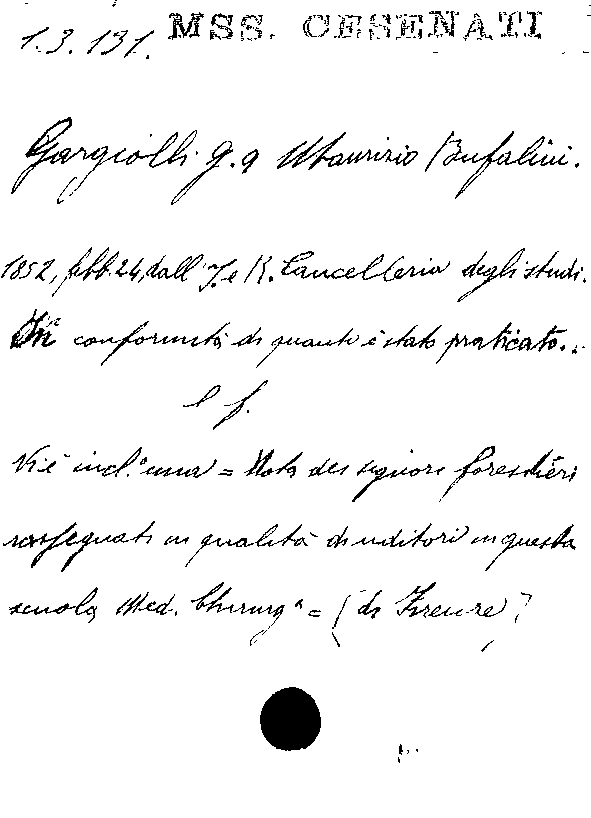 1.3.131. MSS. CESENATI
Gargiolli G. a Maurizio Bufalini.
1852, febb. 24, dall' I. e R. Cancelleria degli studi.
In conformità di quanto è stato praticato..
l f.
Vi è incl.ª una = Nota dei signori forestieri
rassegnati in qualità di uditori in questa
scuola Med. Chirurgª = [di Firenze]